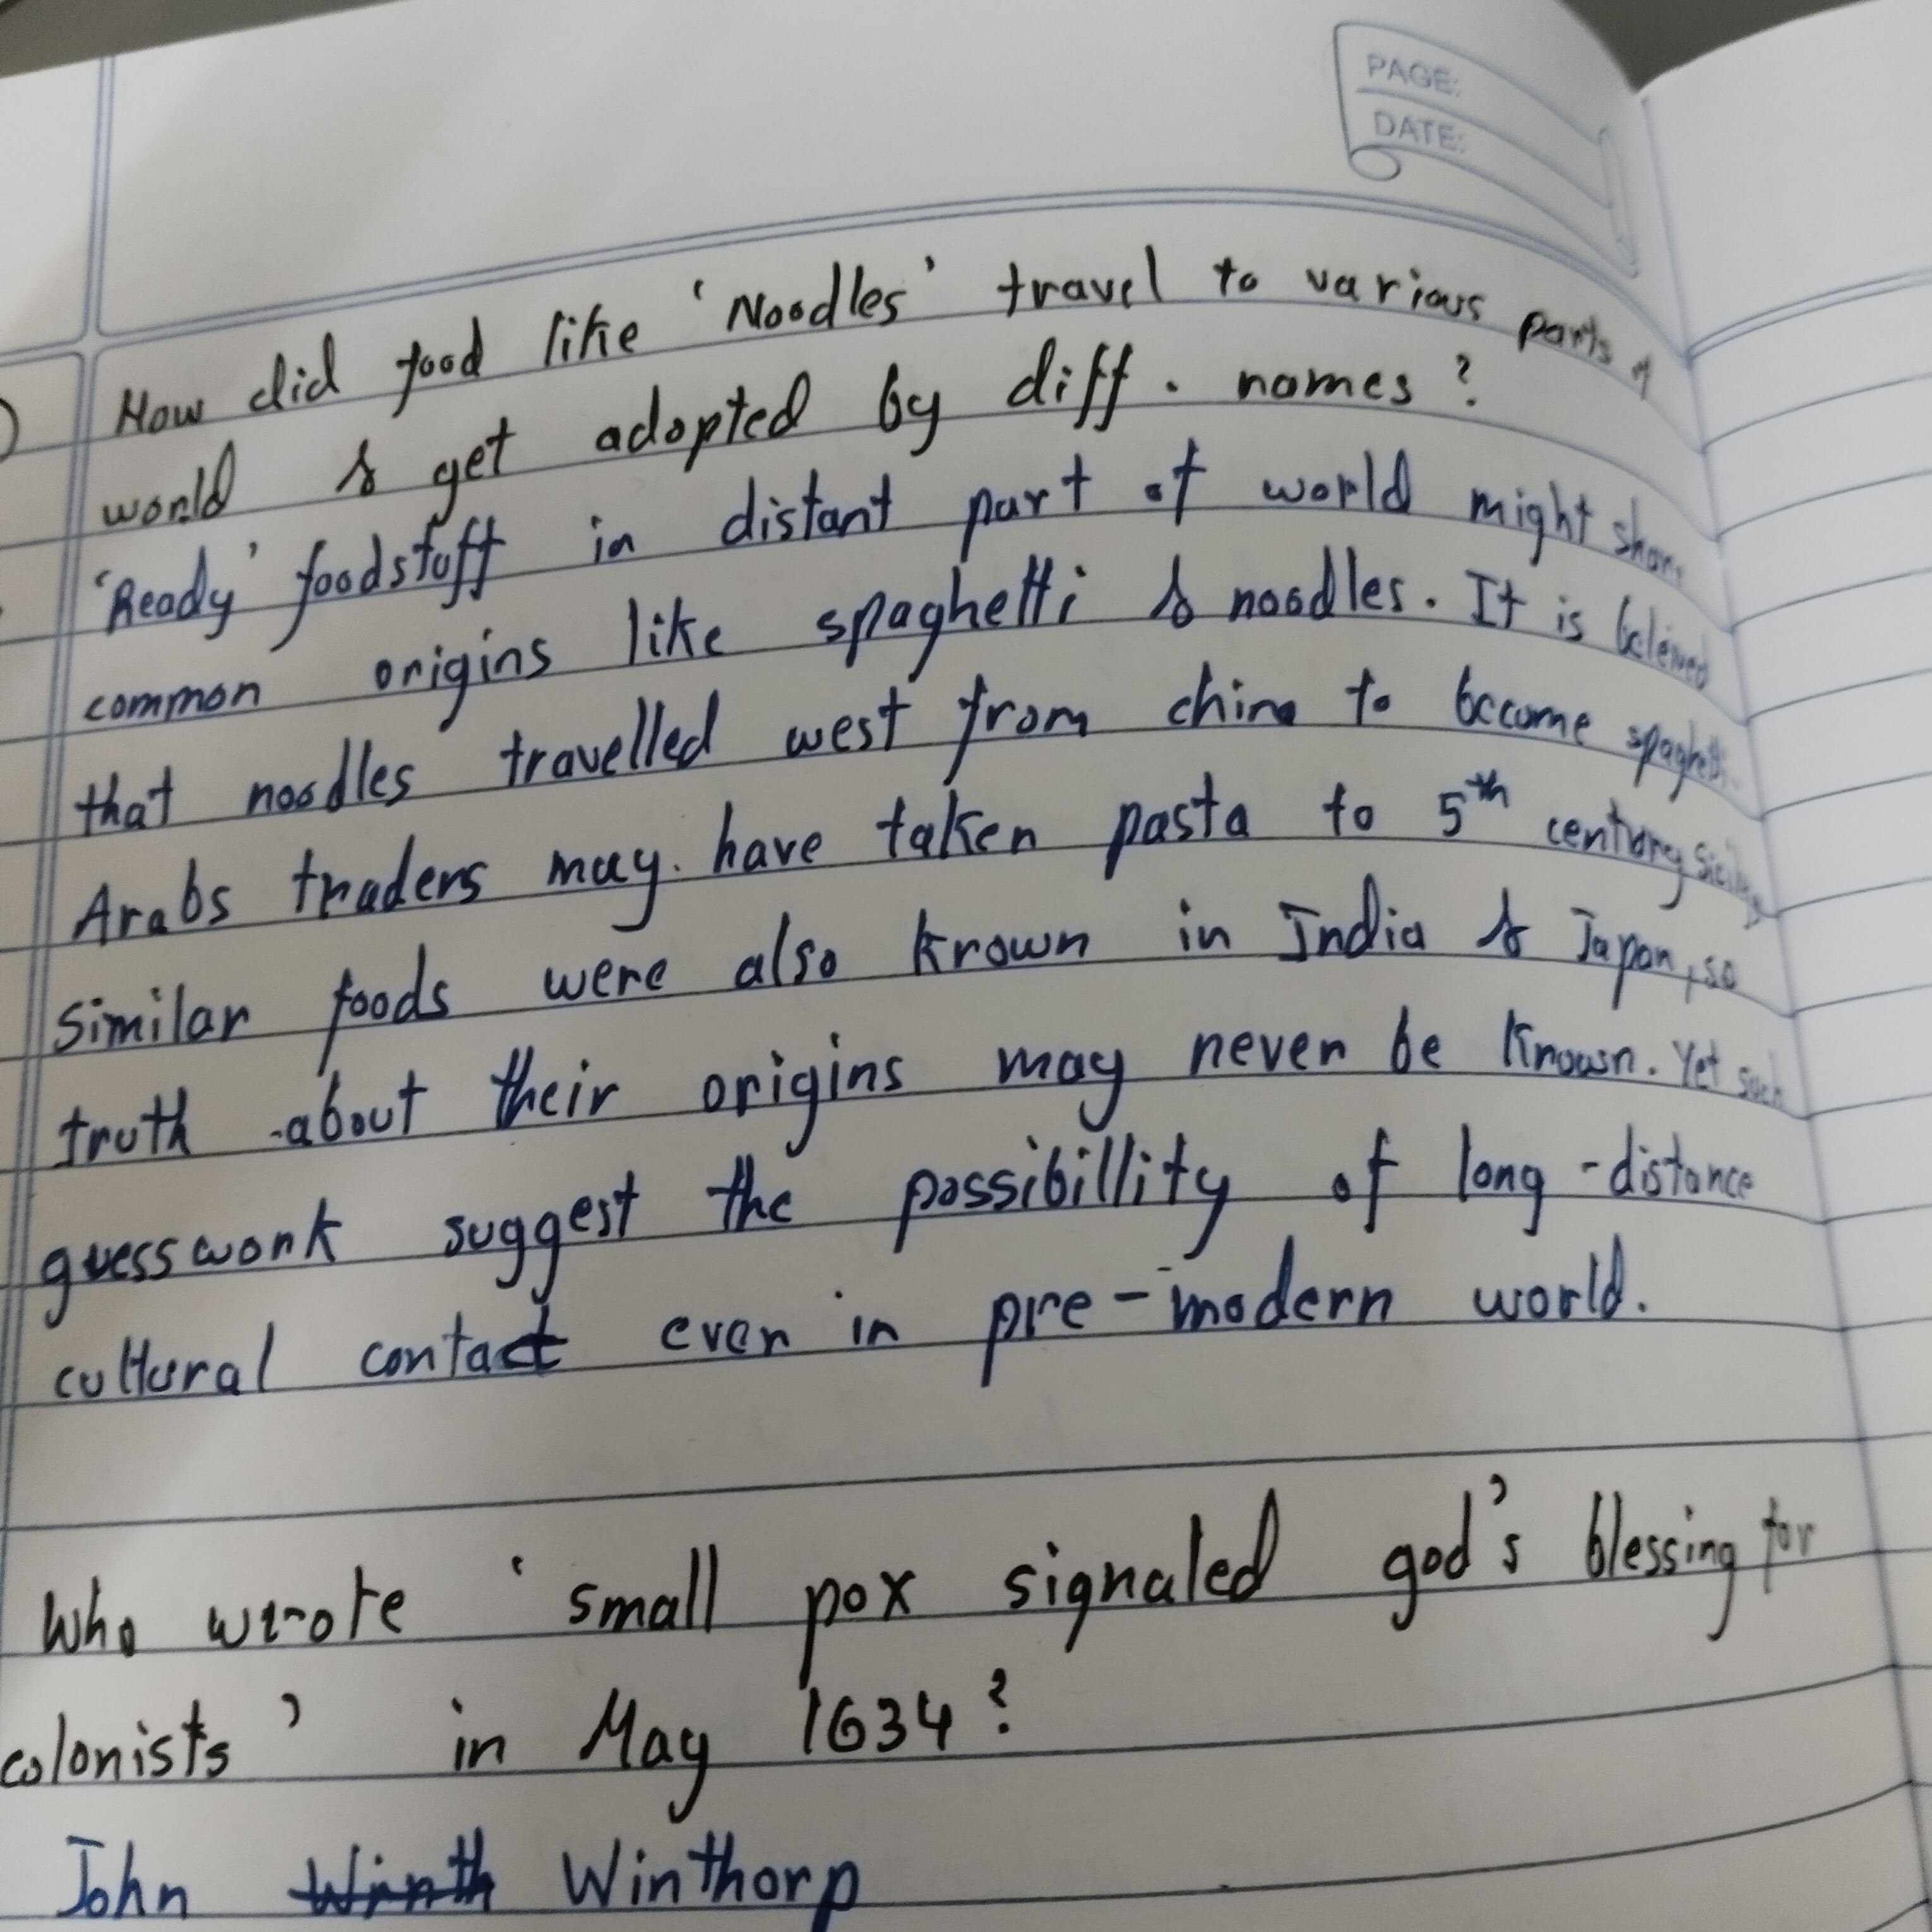 PAGE:
DATE:
How did food like 'Noodles' travel to various parts of
world & get adopted by diff. names?
'Ready' foodstuff in distant part of world might share
common origins like spaghetti & noodles. It is beleived
that noodles travelled west from china to become spaghetti.
Arabs traders may have taken pasta to 5th century Sicily
Similar foods were also known in India & Japan, so
truth about their origins may never be known. Yet such
guesswork suggest the possibillity of long-distance
cultural contact even in pre-modern world.
Who wrote 'small pox signaled god's blessing for
colonists' in May 1634?
John Winth Winthorp